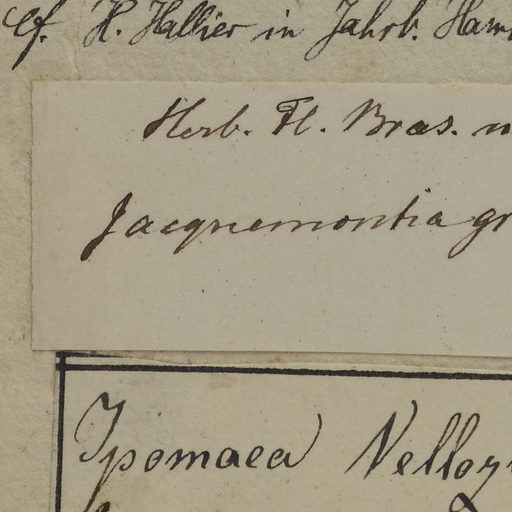 cf. H. Hallier in Jahrb. Ham
Herb. Fl. Bras. n
Jacquemontia gr
Ipomaea Velloz